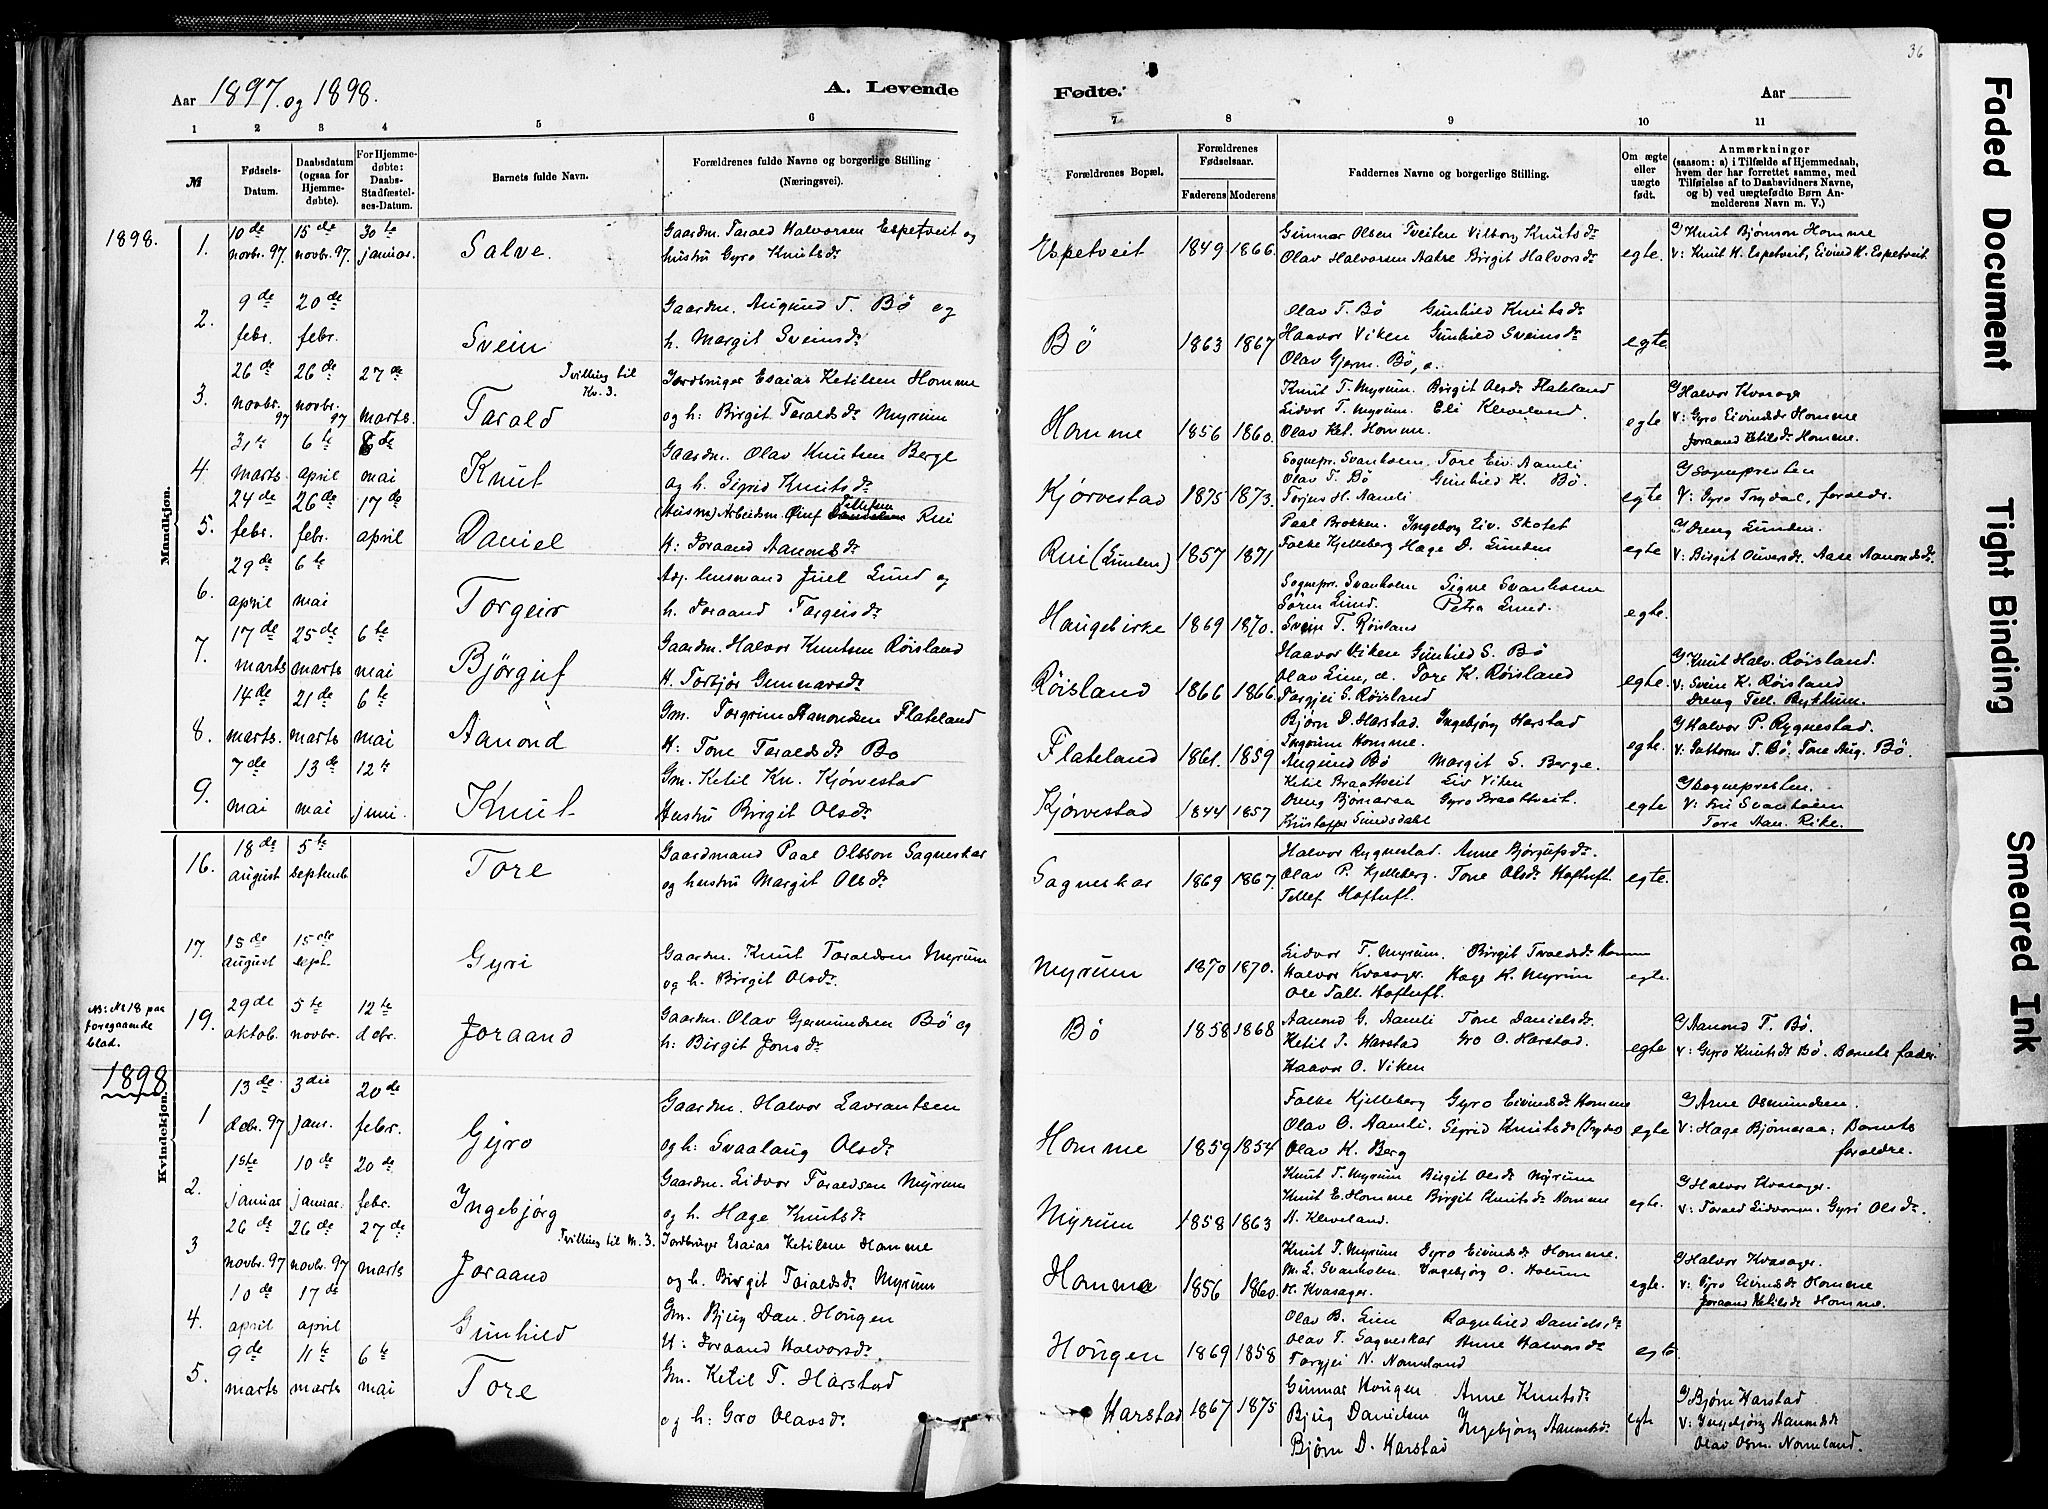 36
Aar 1897 og 1898. A. Levende Fødte. Aar
1 2 3 4 5 6 7 8 9 10 11
№ Fødsels-Datum. Daabsdatum (ogsaa for Hjemme-døbte). For Hjemme-døbte: Daabs-Stadfæstel-ses-Datum. Barnets fulde Navn. Forældrenes fulde Navne og borgerlige Stilling (Næringsvei). Forældrenes Bopæl. Forældrenes Fødselsaar. Faderens Moderens Faddernes Navne og borgerlige Stilling. Om ægte eller uægte født. Anmærkninger (saasom: a) i Tilfælde af Hjemmedaab, hvem der har forrettet samme, med Tilføielse af to Daabsvidners Navne, og b) ved uægtefødte Børn Anmelderens Navn m. V.)
1898.
Mandkjøn.
1. 10de novbr. 97. 15de novbr. 97. 30te januar. Salve. Gaardm. Tarald Halvorsen Espetveit og hustru Gyro Knutsdr. Espetveit 1849 1866. Gunnar Olsen Tveiten Vilborg Knutsdr. Olav Halvorsen Aakre Birgit Halvorsdr. egte. Knut Bjørnson Homme V: Knut K. Espetveit, Eivind K. Espetveit
2. 9de febr. 20de febr. Svein Gaardm. Augund T. Bö og h. Margit Sveinsdr. Bö 1863 1867 Olav T. Bö Gunhild Knutsdr. Haavor Viken Gunhild Sveinsdr. Olav Gjerm. Bö, egte.
3. 26de novbr. 97 26de novbr. 97 27de marts. Tarald Tvilling til Kv. 3. Jordbruger Esaias Ketilsen Homme og h: Birgit Taraldsdr. Myrum Homme 1856 1860. Knut T. Myrum. Birgit Olsdr. Flateland Lidvor T. Myrum. Eli Kleveland. Olav Ket. Homme. egte. Halvor Kvasager V: Gyro Eivindsdr Homme Joraand Ketilsdr Homme.
4. 31te marts. 6te april 8de mai Knut Gaardm. Olav Knutsen Berge og h. Sigrid Knutsdr. Kjørvestad 1875 1873. Sognepr. Svanholm, Tore Eiv. Aamli Olav T. Bö Gunhild K. Bö. Torjus H. Aamli egte Sognepresten V: Gyro Trydal, foraldr.
5. 24de febr. 26de febr. 17de april Daniel (Husm) Arbeidsm. Tellefsen Rui H: Joraand Aanonsdr. Rui (Lunden) 1857 1871 Paal Brokken. Ingeborg Eiv. Skotet Falke Kjelleberg Hage D. Lunden egte Dreng Lunden. V: Birgit Aase Aanondsdr.
6. 29de april 6te mai Torgeir Adj. lensmand Juel Lund og h. Joraand Targeisdr. Haugebirke 1869 1870. Sognepr. Svanholm Signe Svanholm Søren Lund. Petra Lund. Svein T. Røisland egte.
7. 17de marts 25de marts 6te mai Bjørguf Gaardm. Halvor Knutsen Røisland H. Torbjør Gunnarsdr. Røisland 1866 1866 Haavor Viken Gunhild S. Bö Olav Tore K. Røisland Targjei S. Røisland egte. Knut Halv. Røisland. V: Svein K. Røisland Dreng Tell.
8. 14de marts. 21de marts 6te mai Aanond Gm. Torgrim Aanondsen Flateland H: Tone Taraldsdr. Bø Flateland 1861. 1859 Bjørn D. Harstad. Ingebjørg Harstad Torgrim Homme. Augund Bø Margit S. Berge. egte. Halvor P. Rygnestad. V: Guttorm T. Bö. Tone Aug. Bö.
9. 7de mai 13de mai 12te juni. Knut Gm. Ketil Kn. Kjørvestad Hustru Birgit Olsdr. Kjørvestad 1844 1857 Ketil Braattveit Liv Viken Dreng Bjørnaraa Gyro Braattveit. egte Sognepresten. V: Fru Svanholm Tore Aan. Rike.
16. 18de august 5te Septemb Tore Gaardmand Paal Olsson Sagneskar og hustru Margit Olsdr. Sagneskar 1869 1867. Halvor Rygnestad. Anne Bjørgufsdr. Olav P. Kjelleberg. Tone Olsdr Hoftuft. Tellef Hoftuft. egte.
17. 15de august 15de sept. Gyri Gaardm. Knut Taraldsen Myrum og h. Birgit Olsdr. Myrum 1870 1870. Lidvor T. Myrum. Birgit Taraldsdr Homme Halvor Kvasager. Hage K. Myrum Ole Tall. Hoftuft. egte.
NB: No 18 paa foregaaende blad.
19. 29de oktob. 5te novbr. 12te decbr. Joraand Gaardm. Olav Gjermundsen Bö og h: Birgit Jonsdr. Bö 1858 1868 Aanond G. Aamli Tone Danielsdr. Ketil T. Harstad Gro O. Harstad. Haavor O. Viken egte Aanond T. Bö. V: Gyro Knutsdr Bö. Barnets fader
1898
Kvindekjøn.
1 13de decbr. 97 3die janr. 20de febr. Gyro Gaardm. Halvor Lavrantsen og h: Svaalaug Olsdr. Homme 1859 1854 Falke Kjelleberg Gyro Eivindsdr Homme Olav O. Aamli. Sigrid Knutsdr Olav K. Berg egte Arne Osmundsen. V: Hage Bjørnaraa; Barnets foraldre.
2. 1ste januar 10de januar. 20de febr. Ingebjørg Gaardm. Lidvor Taraldsen Myrum og h. Hage Knutsdr. Myrum 1858 1863 Knut T. Myrum Birgit Olsdr Myrum Knut E. Homme Birgit Knutsdr Homme A. Kleveland. egte. Halvor Kvasager. V: Tarald Lidvorsn. Gyri Olsdr.
3 26de novbr. 97 26de novbr. 97 27de marts Joraand Tvilling til M. 3. Jordbruger Esaias Ketilsen Homme og h. Birgit Taraldsdr. Myrum Homme 1856 1860. Knut T. Myrum Gyro Eivindsdr Homme. M. L. Svanholm Ingebjørg O. Holum H. Kvasager. egte. Halvor Kvasager. V: Gyro Eivindsdr Homme Joraand Ketilsdr Homme.
4. 10de april 17de april Gunhild Gm. Bjug Dan. Hougen H: Joraand Halvorsdr. Hougen 1869 1858 Olav B. Lien Ragnhild Danielsdr. Olav T. Sagneskar Anne Halvorsdr Targjei N. Nomeland egte
5. 9de marts 11te marts 6te mai Tore Gm. Ketil T. Harstad og h: Gro Olavsdr. Harstad 1867 1875 Gunnar Hougen Anne Knutsdr. Bjug Danielsen Ingebjørg Aanondsdr. Bjørn D. Harstad egte Bjørn Harstad V: Ingebjørg Aanondsdr Olav Osm. Nomeland.
Faded Document
Tight Binding
Smeared Ink